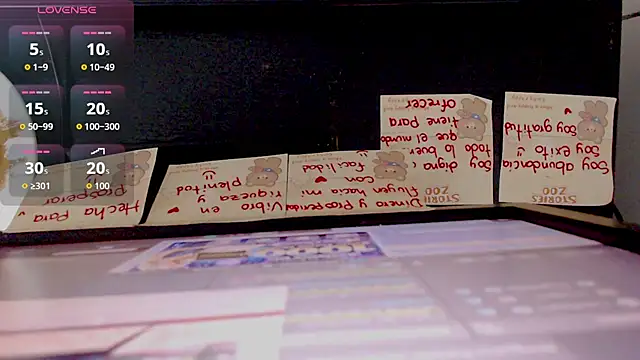 LOVENSE
5s
1~9
10s
10~49
15s
50~99
20s
100~300
30s
≥301
20s
100
Hecha para
prosperar
Vibro en
riqueza y
plenitud
Dinero y Prosperidad
fluyen hacia mi
con
facilidad
STORIES
ZOO
Soy digna
todo lo
que el mundo
tiene para
ofrecer
STORIES
ZOO
Soy abundancia
Soy éxito
Soy gratitud